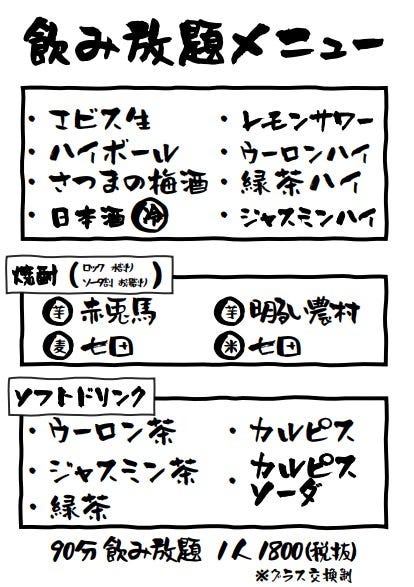 飲み放題メニュー
・ヱビス生
・ハイボール
・さつまの梅酒
・日本酒 冷
・レモンサワー
・ウーロンハイ
・緑茶ハイ
・ジャスミンハイ
焼酎 (ロック 水割り
ソーダ割 お湯割り)
芋 赤兎馬
芋 明るい農村
麦 七田
米 七田
ソフトドリンク
・ウーロン茶
・ジャスミン茶
・緑茶
・カルピス
・カルピス
ソーダ
90分 飲み放題 1人 1800(税抜)
※グラス交換制